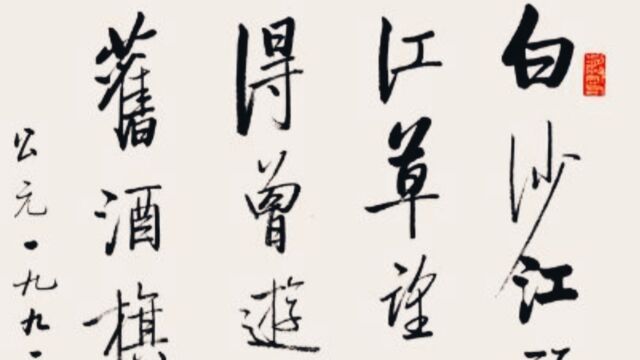 白沙江
江草望
得曾遊
舊酒旗
公元一九九